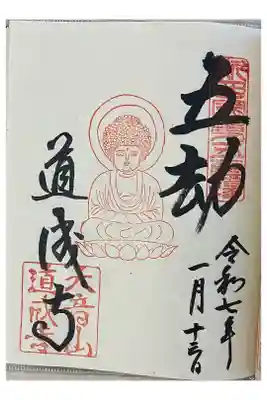 五劫
令和七年
一月十三日
道成寺
大音山
道成寺